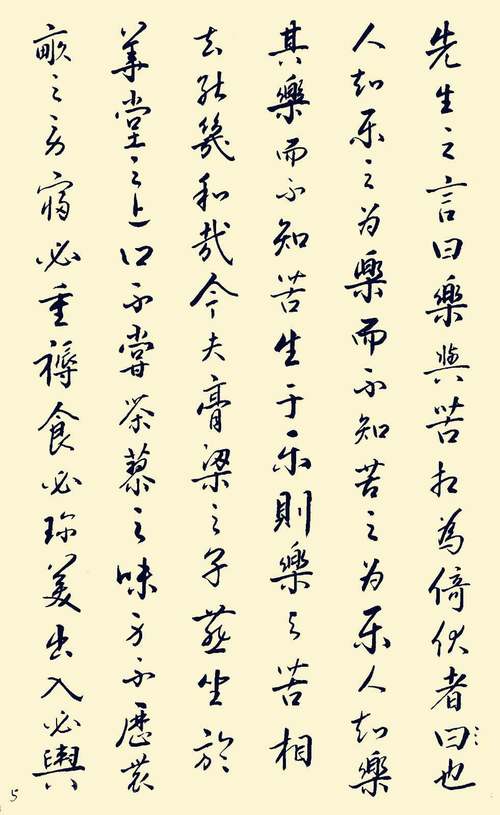 先生之言曰樂與苦相為倚伏者曰也
人知乐之为樂而不知苦之为乐人知樂
其樂而不知苦生于乐則樂与苦相
去能幾和哉今夫膏梁之子燕坐於
華堂之上口不嘗荼蓼之味身不歷農
畝之劳寢必重褥食必珍美出入必輿
5